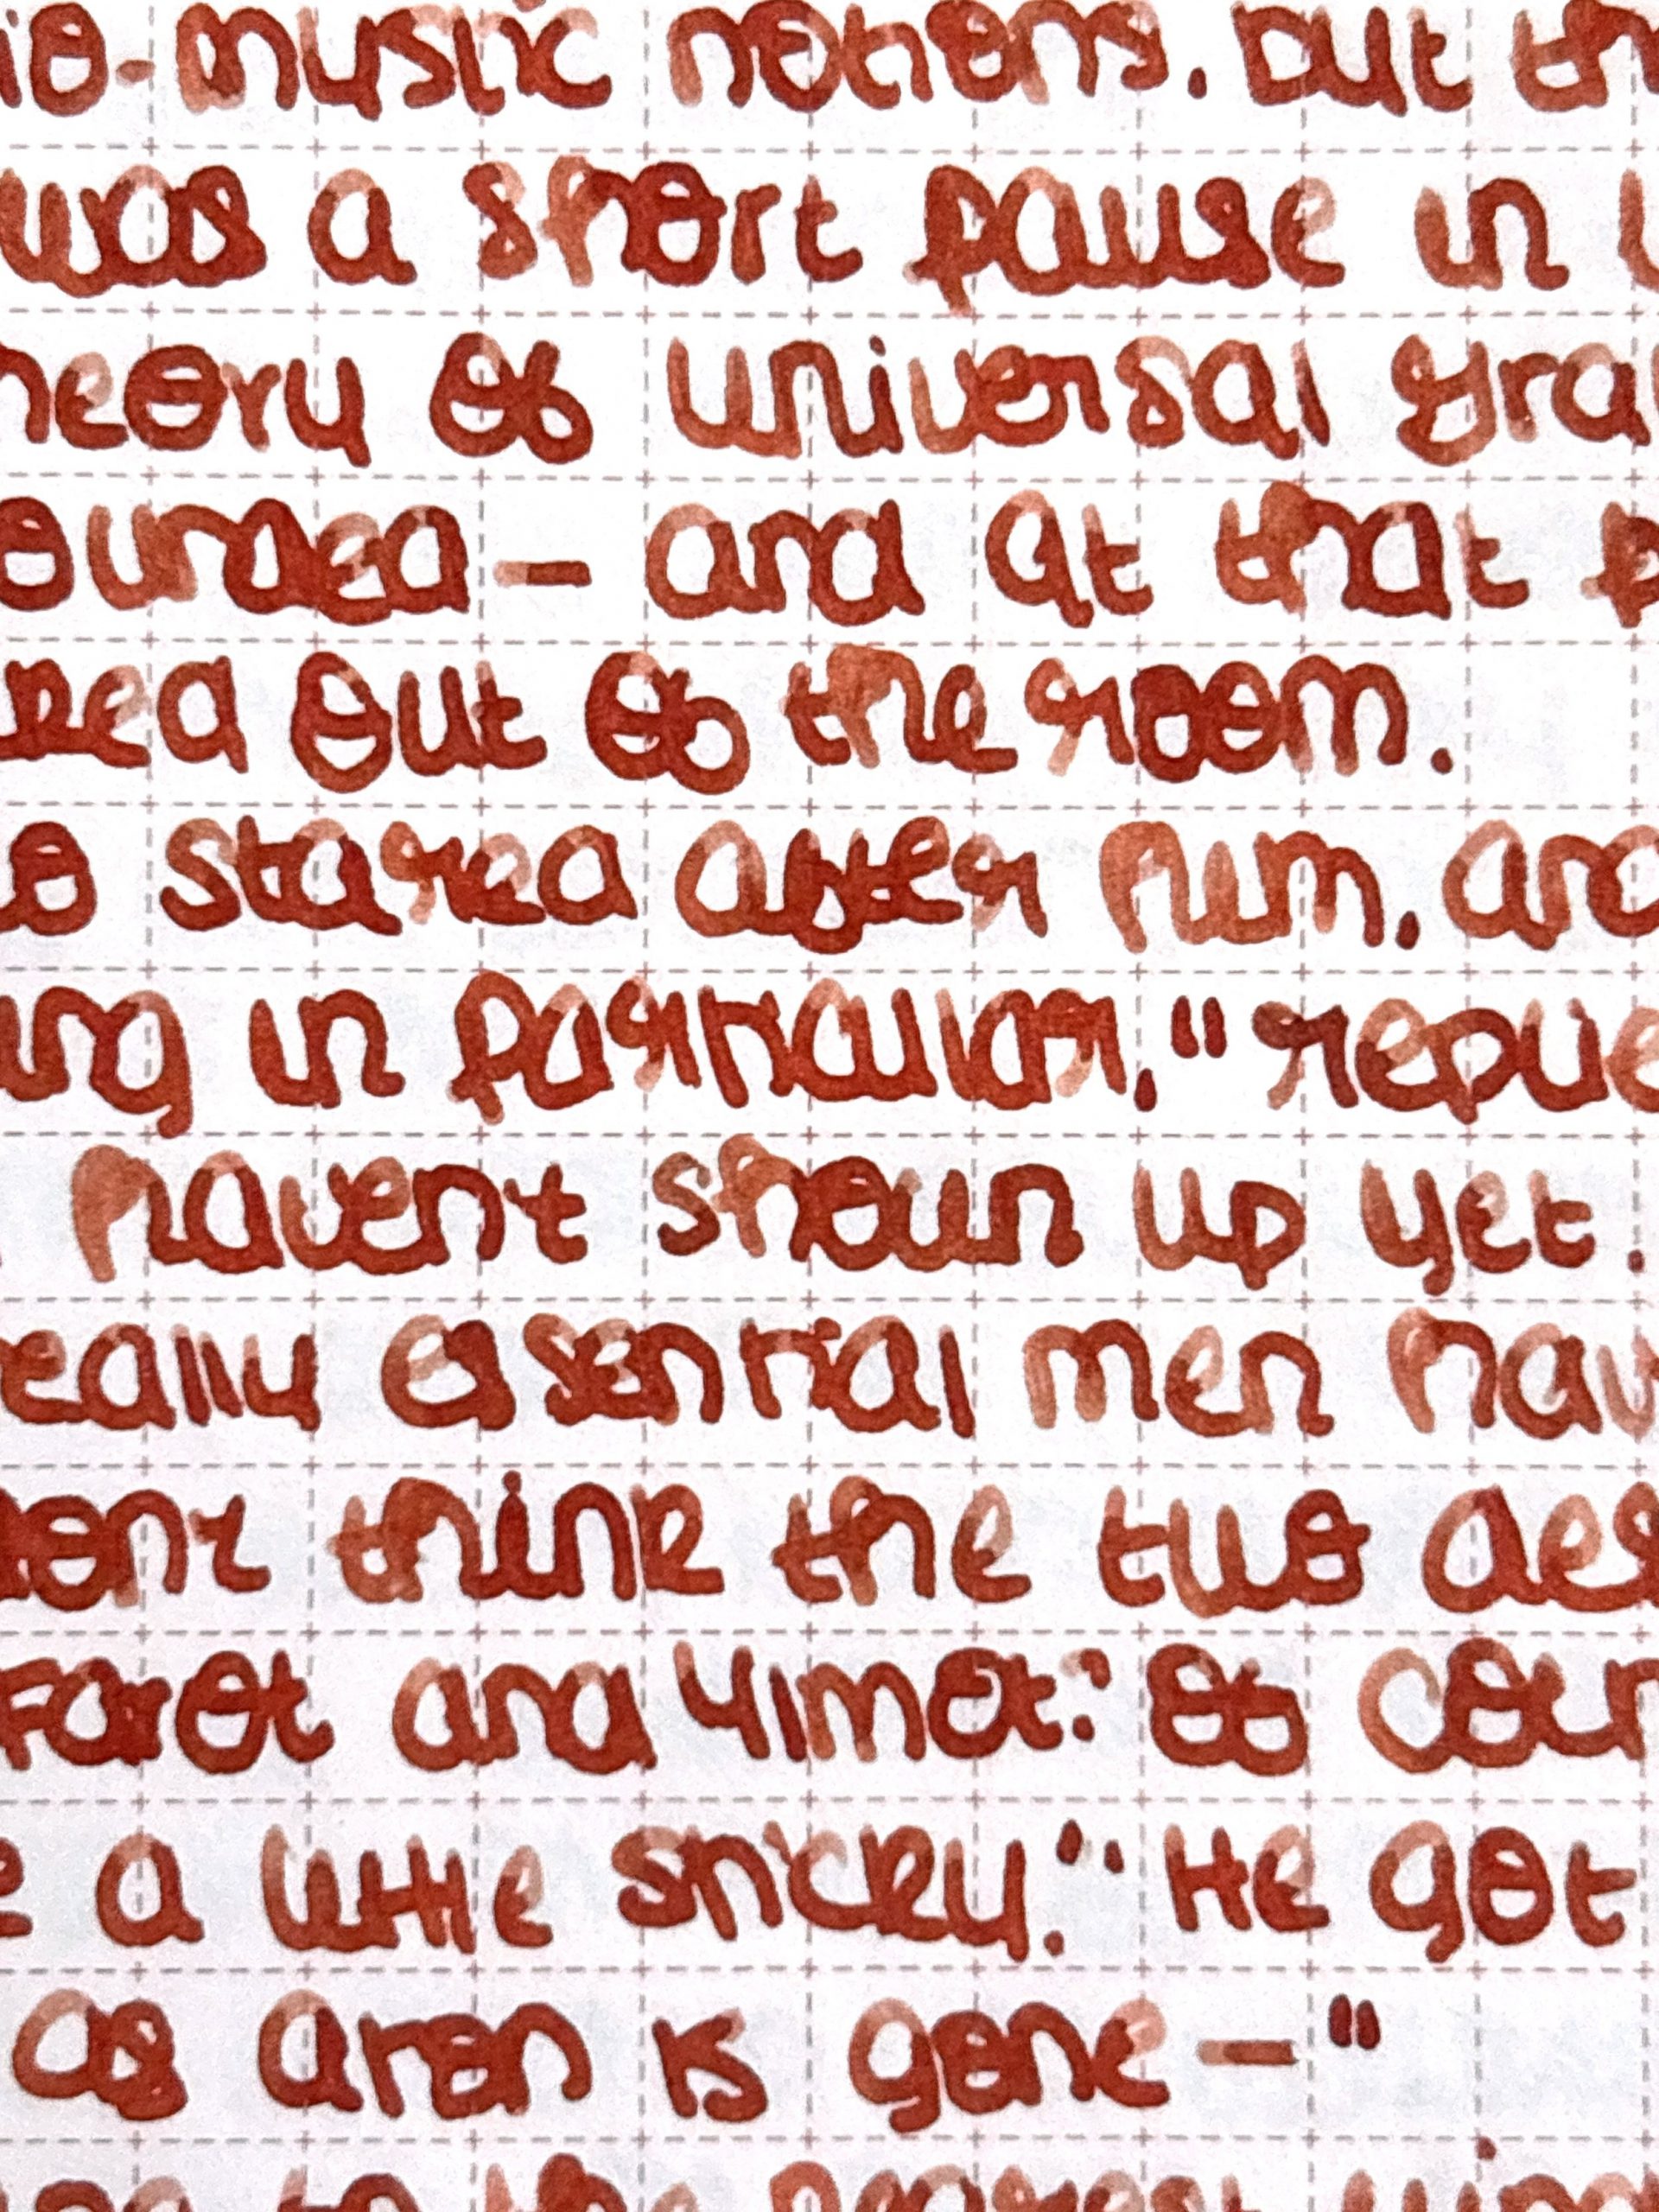 io-mystic notions. But th
was a short pause in
heory of universal gra
ounded — and at that p
ked out of the room.
o stared after him, and
ing in particular," replie
havent shown up yet.
eally essential men hav
ont think the two des
Farot and Yimot: of cour
e a little sticky." He got
as Aton is gone —"
to the nearest